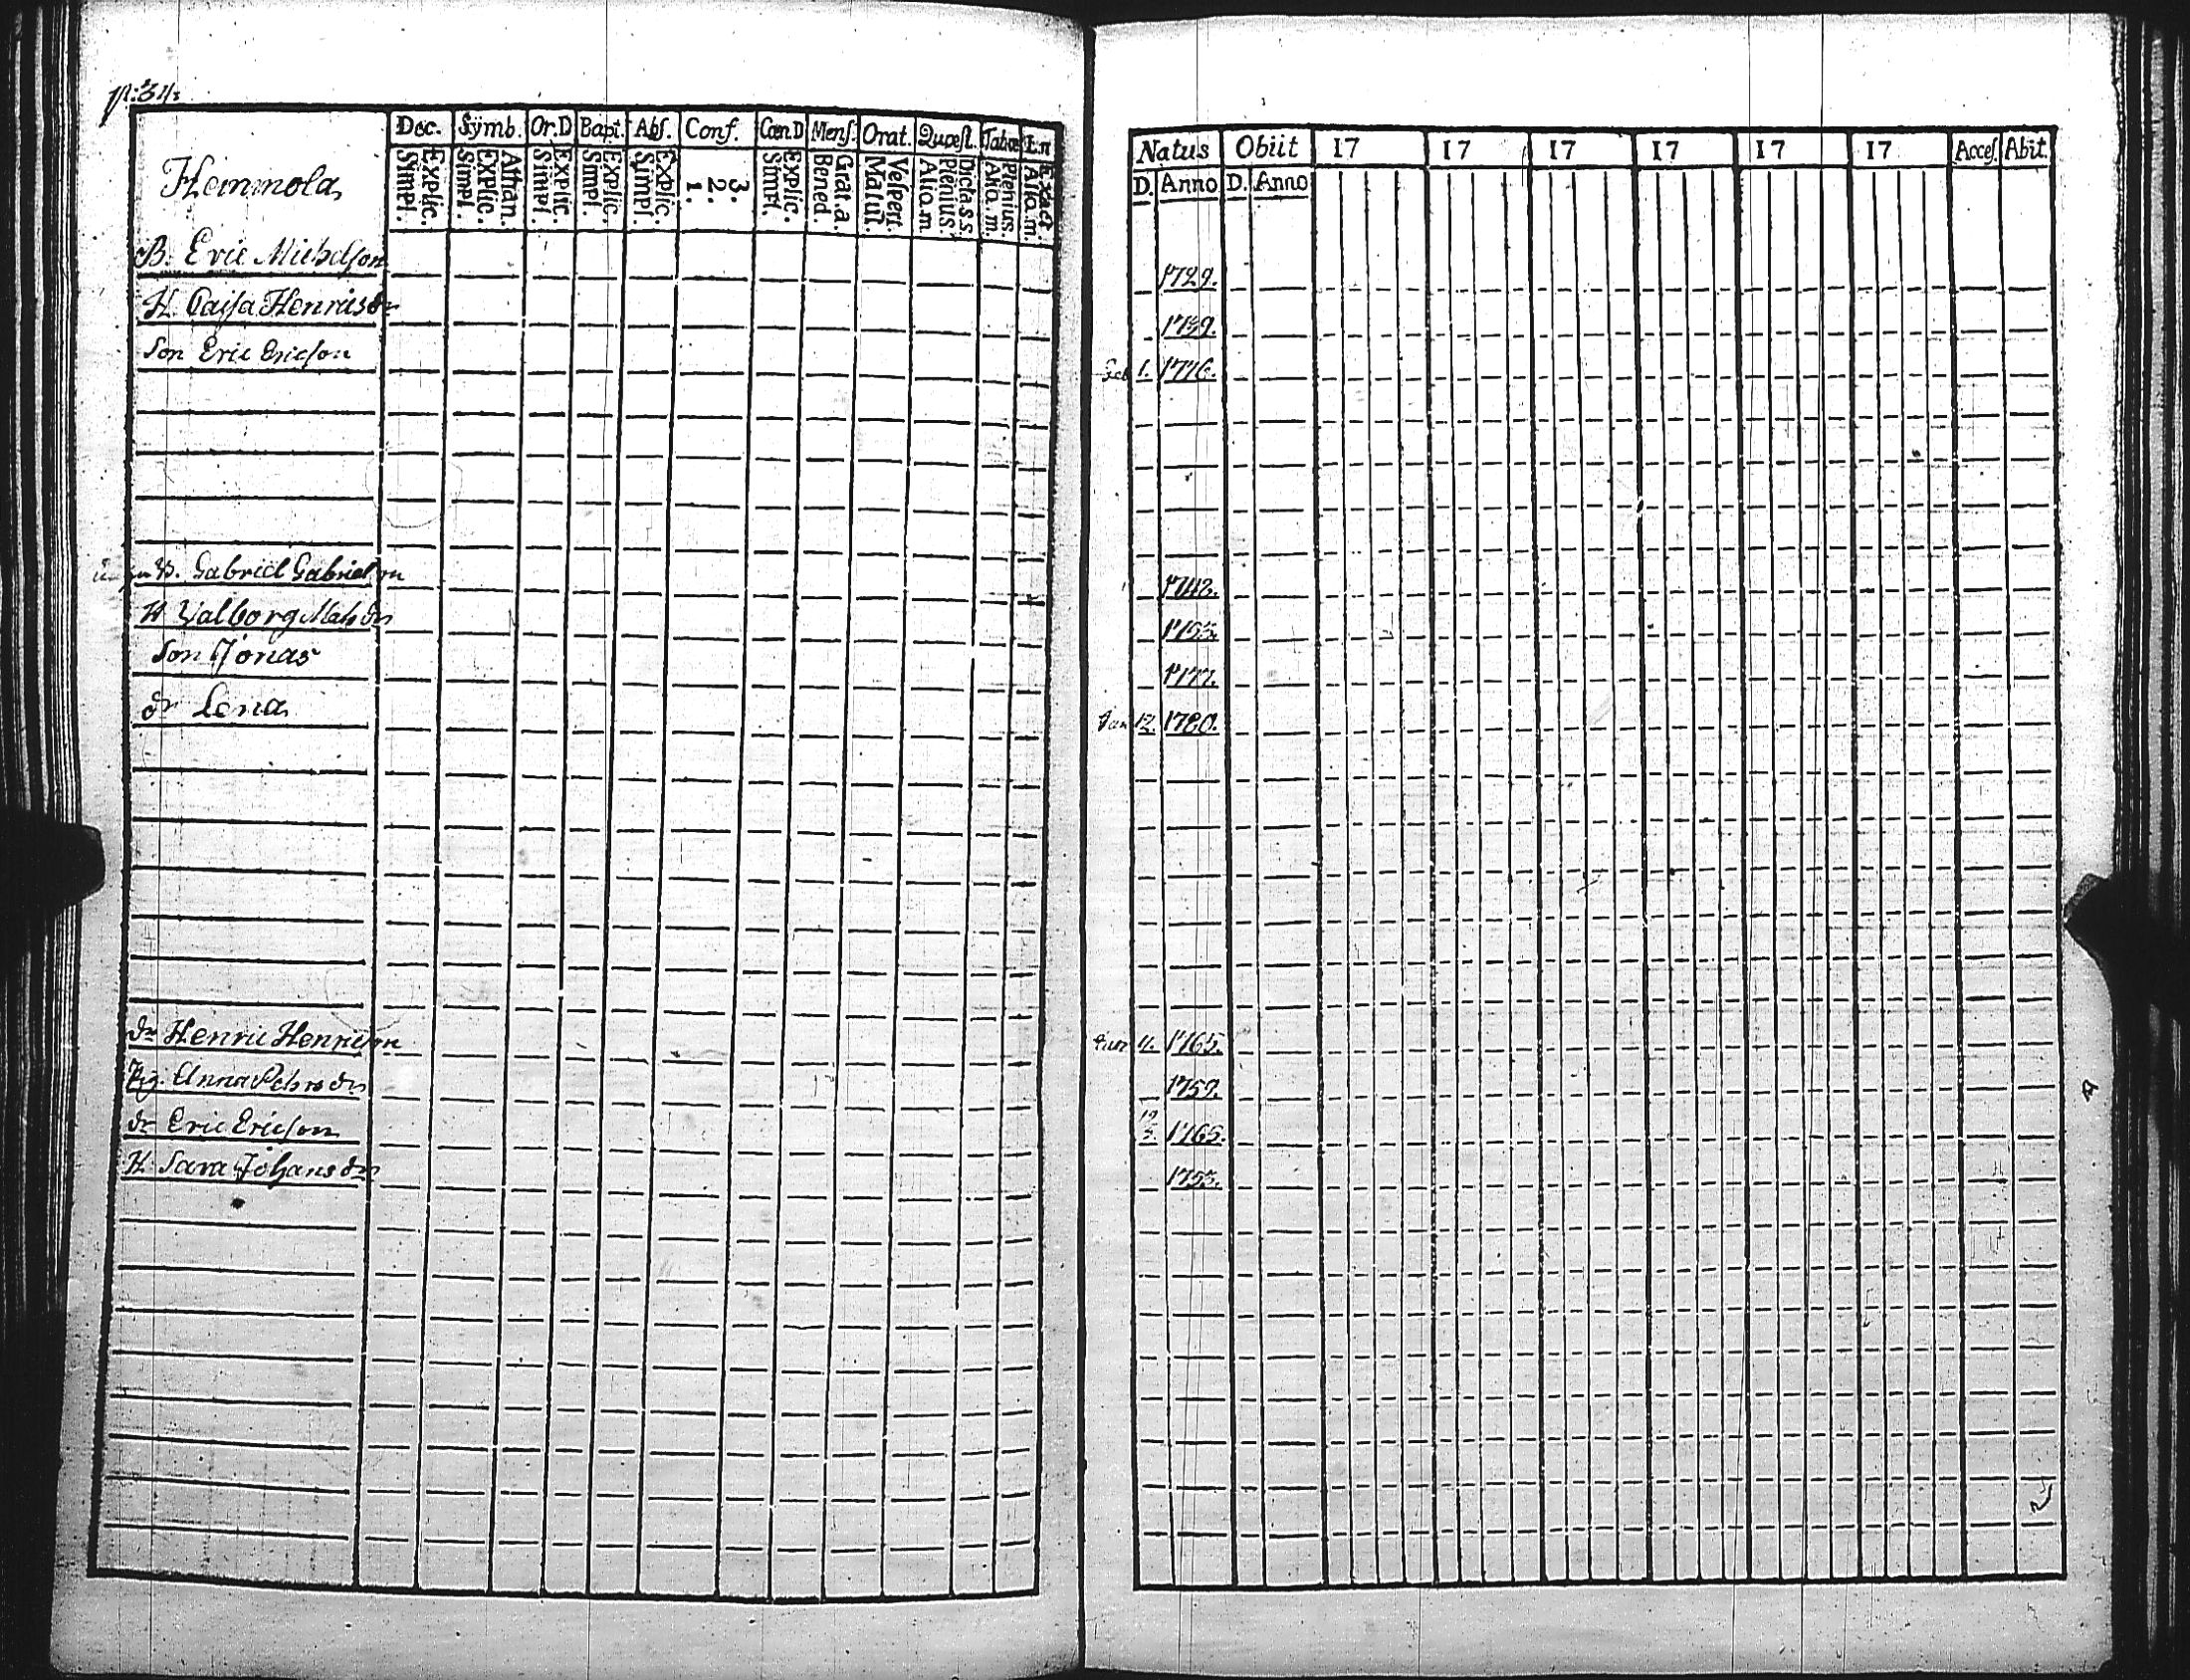 Dec. Symb. Or.D Bapt. Abs. Conf. Cœn.D Mens. Orat. Quæst. Tabœ
Heimmola
Simpl. Explic. Simpl. Explic. Athan. Simpl. Explic. Simpl. Explic. Simpl. Explic. 1. 2. 3. Simpl. Explic. Bened. Grat.a. Matut. Vespert. Alio.m. Plenius. Dict.a.s.s. Alio.m. Plenius. Alio.m. Exact.
B. Eric Michelson
H. Caisa Henricsdr
Son Eric Ericson
B. Gabriel Gabrielson
H Valborg Matsdr
Son Jonas
dr Lena
dr Henric Henricson
Pig. Anna Pehrsdr
dr Eric Ericson
H. Sara Johansdr
Natus Obiit 17 17 17 17 17 17 Acces. Abit.
D. Anno D. Anno
1729.
1739.
Feb 1. 1776.
1742.
1755.
1777.
Jan 12. 1780.
11. 1765.
1757.
1765.
1755.